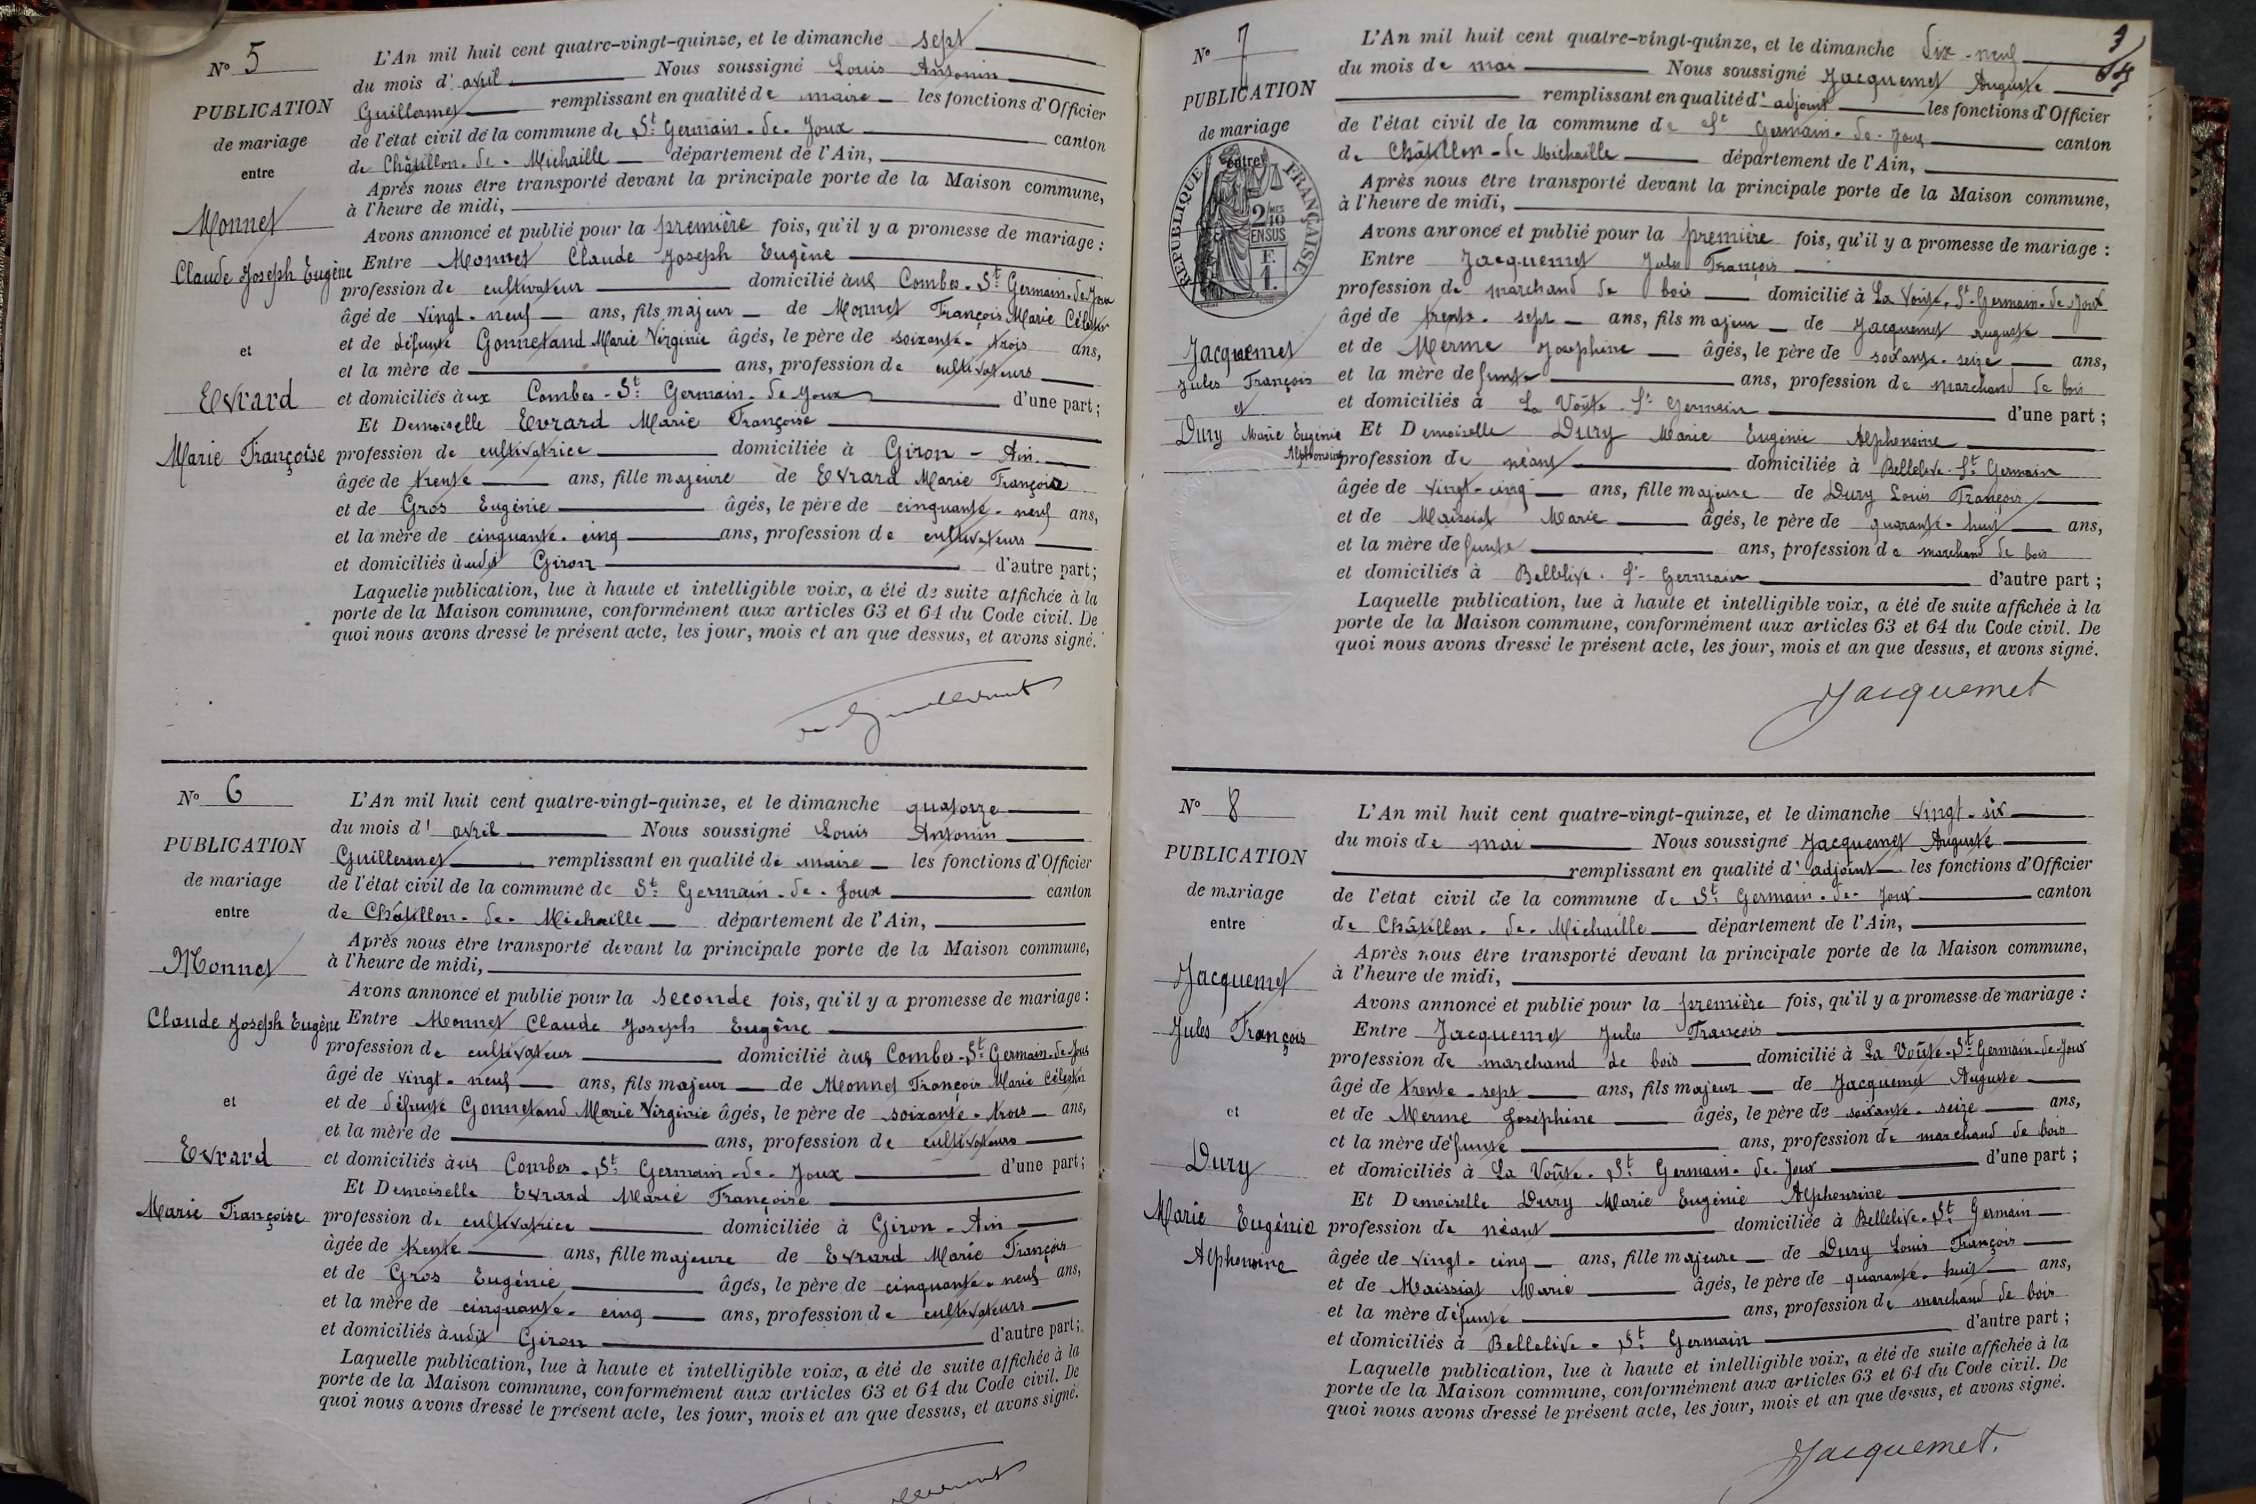 N° 5
PUBLICATION
de mariage
entre
Monnet
Claude Joseph Eugène
et
Evrard
Marie Françoise
L'An mil huit cent quatre-vingt-quinze, et le dimanche sept
du mois d' avril Nous soussigné Louis Antonin
Guillermet remplissant en qualité de maire les fonctions d'Officier
de l'état civil de la commune de St Germain-de-Joux canton
de Châtillon-de-Michaille département de l'Ain,
Après nous être transporté devant la principale porte de la Maison commune,
à l'heure de midi,
Avons annoncé et publié pour la première fois, qu'il y a promesse de mariage :
Entre Monnet Claude Joseph Eugène
profession de cultivateur domicilié aux Combes-St Germain-de-Joux
âgé de vingt-neuf ans, fils majeur de Monnet François Marie Célestin
et de défunte Gonnetand Marie Virginie âgés, le père de soixante-trois ans,
et la mère de ans, profession de cultivateurs
et domiciliés aux Combes-St Germain-de-Joux d'une part;
Et Demoiselle Evrard Marie Françoise
profession de cultivatrice domiciliée à Giron-Ain
âgée de trente ans, fille majeure de Evrard Marie François
et de Gros Eugénie âgés, le père de cinquante-neuf ans,
et la mère de cinquante-cinq ans, profession de cultivateurs
et domiciliés audit Giron d'autre part;
Laquelle publication, lue à haute et intelligible voix, a été de suite affichée à la
porte de la Maison commune, conformément aux articles 63 et 64 du Code civil. De
quoi nous avons dressé le présent acte, les jour, mois et an que dessus, et avons signé.
Guillermet
N° 6
PUBLICATION
de mariage
entre
Monnet
Claude Joseph Eugène
et
Evrard
Marie Françoise
L'An mil huit cent quatre-vingt-quinze, et le dimanche quatorze
du mois d' avril Nous soussigné Louis Antonin
Guillermet remplissant en qualité de maire les fonctions d'Officier
de l'état civil de la commune de St Germain-de-Joux canton
de Châtillon-de-Michaille département de l'Ain,
Après nous être transporté devant la principale porte de la Maison commune,
à l'heure de midi,
Avons annoncé et publié pour la seconde fois, qu'il y a promesse de mariage :
Entre Monnet Claude Joseph Eugène
profession de cultivateur domicilié aux Combes-St Germain-de-Joux
âgé de vingt-neuf ans, fils majeur de Monnet François Marie Célestin
et de défunte Gonnetand Marie Virginie âgés, le père de soixante-trois ans,
et la mère de ans, profession de cultivateurs
et domiciliés aux Combes-St Germain-de-Joux d'une part;
Et Demoiselle Evrard Marie Françoise
profession de cultivatrice domiciliée à Giron-Ain
âgée de trente ans, fille majeure de Evrard Marie François
et de Gros Eugénie âgés, le père de cinquante-neuf ans,
et la mère de cinquante-cinq ans, profession de cultivateurs
et domiciliés audit Giron d'autre part;
Laquelle publication, lue à haute et intelligible voix, a été de suite affichée à la
porte de la Maison commune, conformément aux articles 63 et 64 du Code civil. De
quoi nous avons dressé le présent acte, les jour, mois et an que dessus, et avons signé.
N° 7
PUBLICATION
de mariage
entre
RÉPUBLIQUE FRANÇAISE
2 MES 10
EN SUS
F.
1.
Jacquemet
Jules François
et
Dury Marie Eugénie
Alphonsine
L'An mil huit cent quatre-vingt-quinze, et le dimanche dix-neuf
du mois de mai Nous soussigné Jacquemet Auguste
remplissant en qualité d' adjoint les fonctions d'Officier
de l'état civil de la commune de St Germain-de-Joux canton
de Châtillon-de Michaille département de l'Ain,
Après nous être transporté devant la principale porte de la Maison commune,
à l'heure de midi,
Avons annoncé et publié pour la première fois, qu'il y a promesse de mariage :
Entre Jacquemet Jules François
profession de marchand de bois domicilié à La Voûte, St-Germain-de-Joux
âgé de trente-sept ans, fils majeur de Jacquemet Auguste
et de Merme Joséphine âgés, le père de soixante-seize ans,
et la mère defunte ans, profession de marchand de bois
et domiciliés à La Voûte-St Germain d'une part;
Et Demoiselle Dury Marie Eugénie Alphonsine
profession de néant domiciliée à Bellelive-St Germain
âgée de vingt-cinq ans, fille majeure de Dury Louis François
et de Maissiat Marie âgés, le père de quarante-huit ans,
et la mère defunte ans, profession de marchand de bois
et domiciliés à Bellelive-St-Germain d'autre part;
Laquelle publication, lue à haute et intelligible voix, a été de suite affichée à la
porte de la Maison commune, conformément aux articles 63 et 64 du Code civil. De
quoi nous avons dressé le présent acte, les jour, mois et an que dessus, et avons signé.
Jacquemet
N° 8
PUBLICATION
de mariage
entre
Jacquemet
Jules François
et
Dury
Marie Eugénie
Alphonsine
L'An mil huit cent quatre-vingt-quinze, et le dimanche vingt-six
du mois de mai Nous soussigné Jacquemet Auguste
remplissant en qualité d' adjoint les fonctions d'Officier
de l'état civil de la commune de St Germain-de-Joux canton
de Châtillon-de-Michaille département de l'Ain,
Après nous être transporté devant la principale porte de la Maison commune,
à l'heure de midi,
Avons annoncé et publié pour la première fois, qu'il y a promesse de mariage :
Entre Jacquemet Jules François
profession de marchand de bois domicilié à La Voûte-St Germain-de-Joux
âgé de trente-sept ans, fils majeur de Jacquemet Auguste
et de Merme Joséphine âgés, le père de soixante-seize ans,
et la mère défunte ans, profession de marchand de bois
et domiciliés à La Voûte-St Germain-de-Joux d'une part;
Et Demoiselle Dury Marie Eugénie Alphonsine
profession de néant domiciliée à Bellelive-St Germain
âgée de vingt-cinq ans, fille majeure de Dury Louis François
et de Maissiat Marie âgés, le père de quarante-huit ans,
et la mère défunte ans, profession de marchand de bois
et domiciliés à Bellelive-St Germain d'autre part;
Laquelle publication, lue à haute et intelligible voix, a été de suite affichée à la
porte de la Maison commune, conformément aux articles 63 et 64 du Code civil. De
quoi nous avons dressé le présent acte, les jour, mois et an que dessus, et avons signé.
Jacquemet.